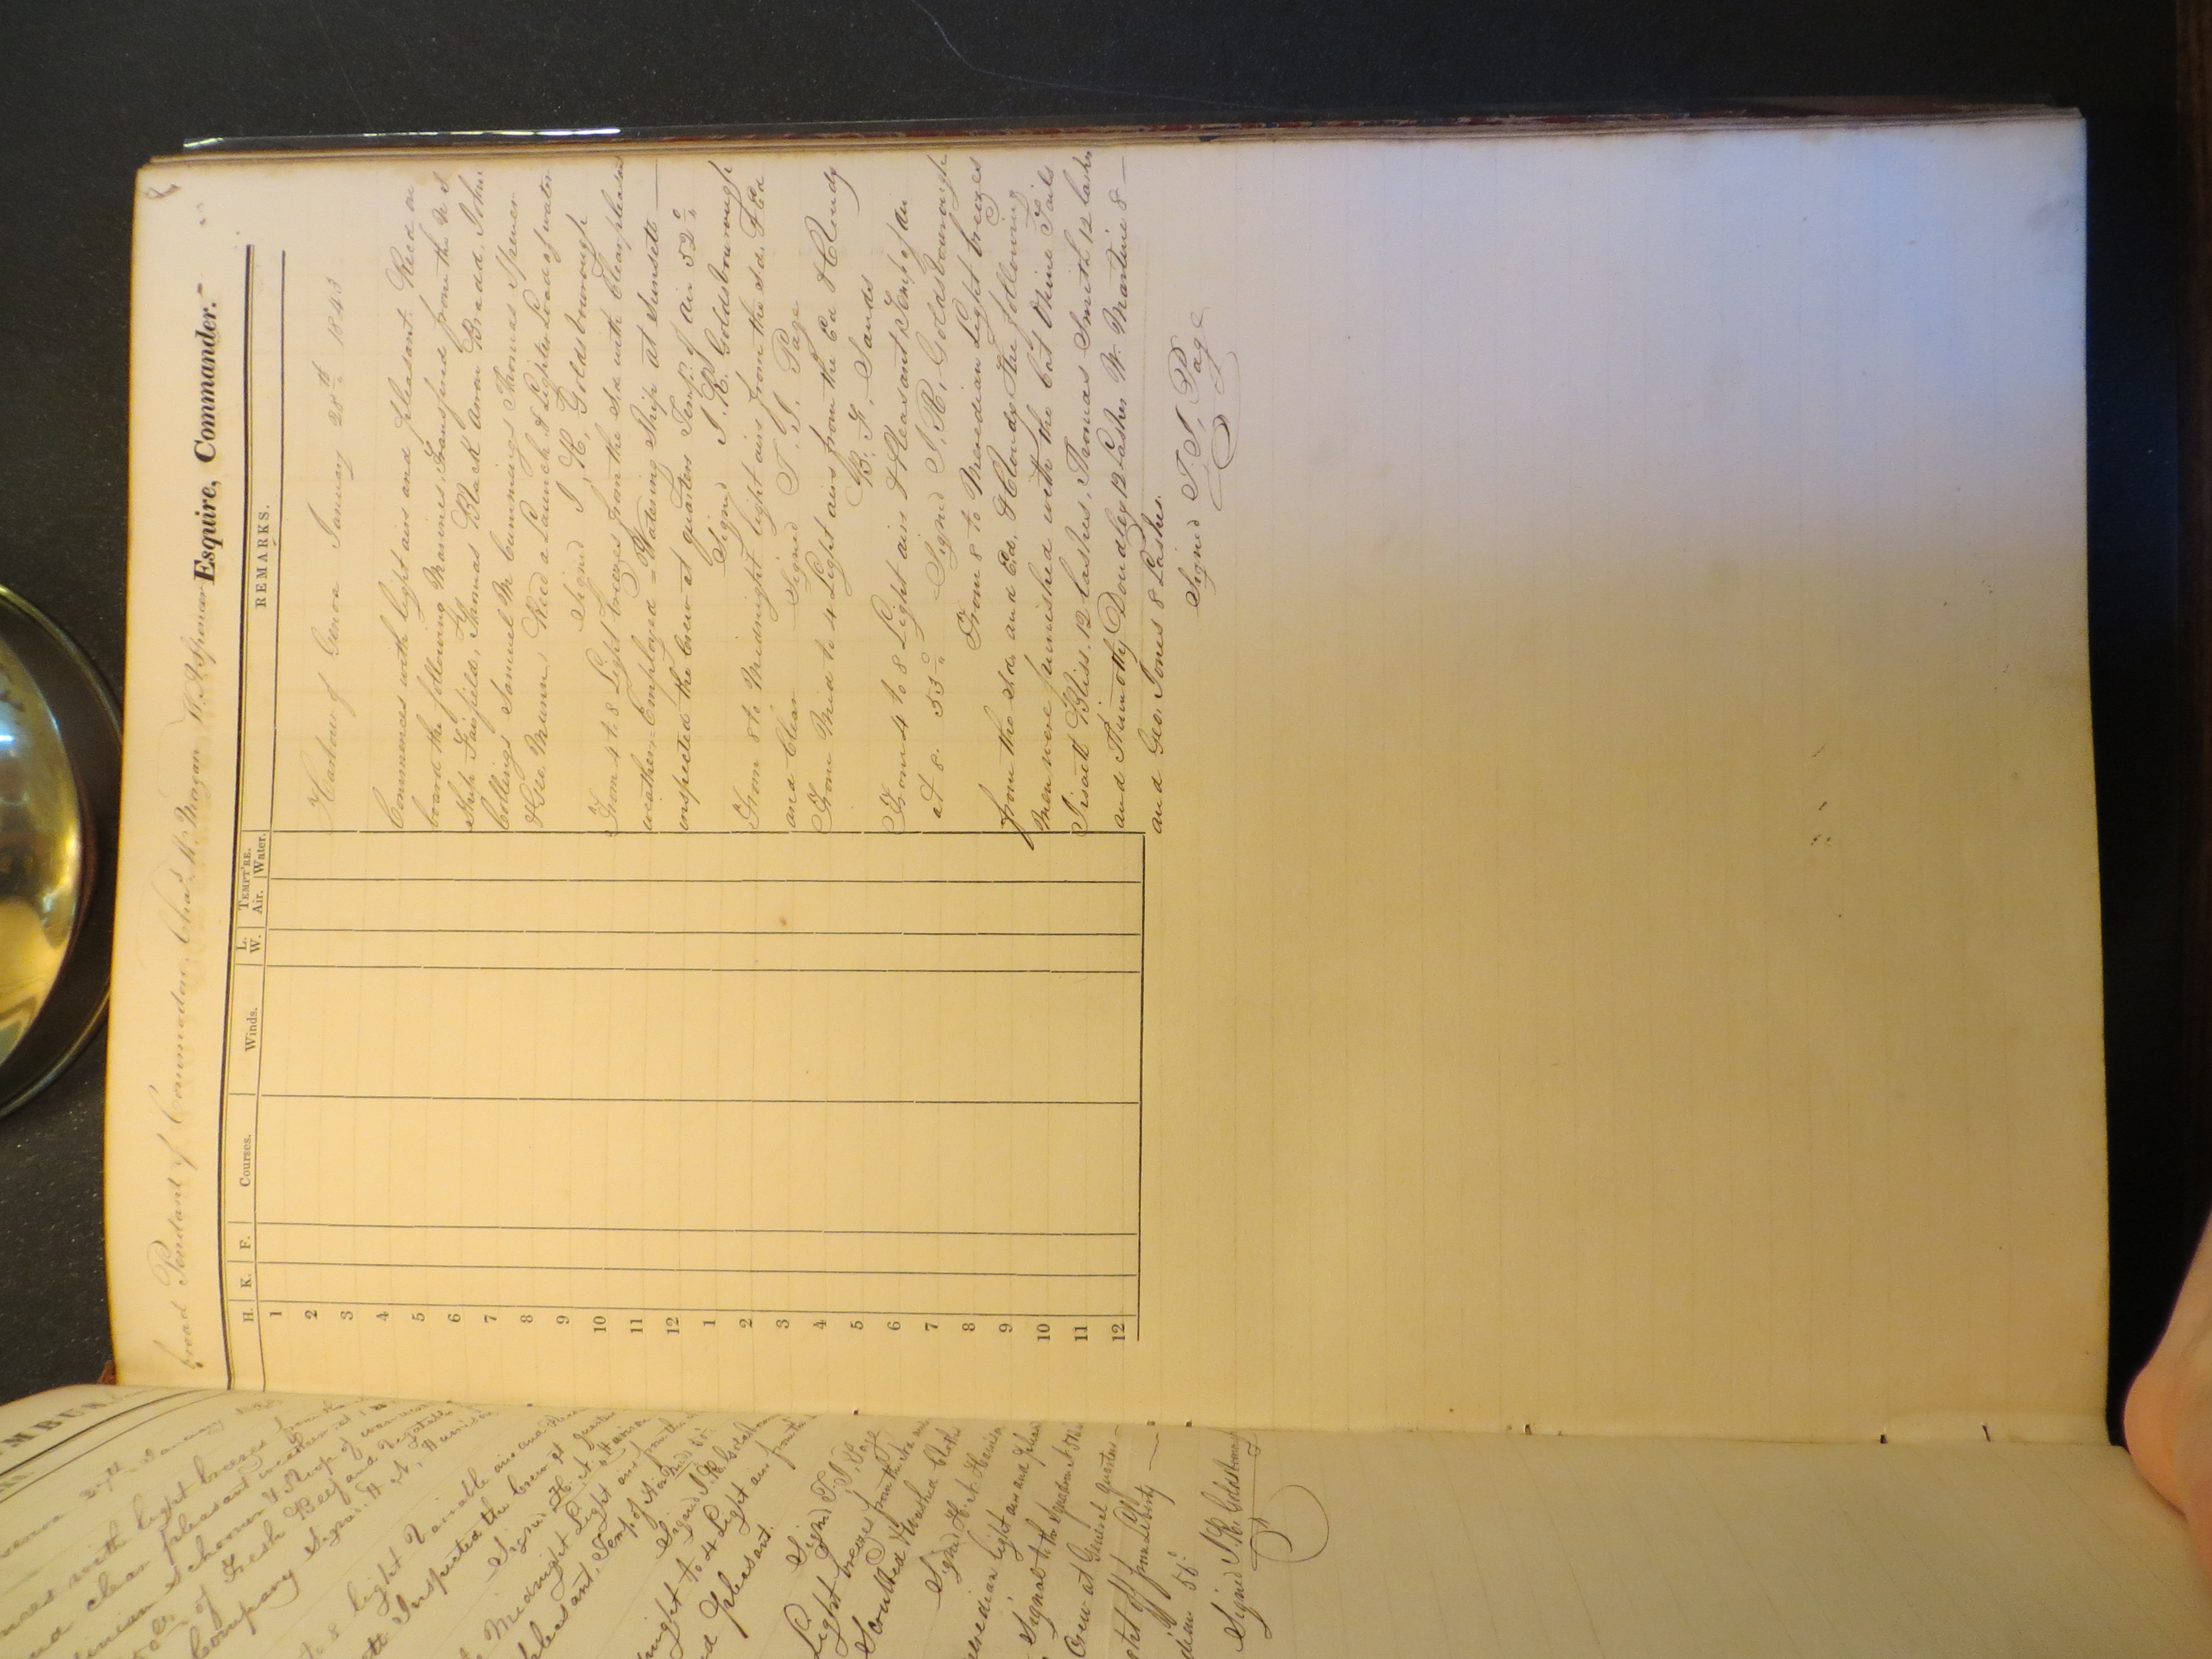 8
broad Pendant of Commodore, Chas. W. Morgan W. A. Spencer Esquire, Commander.
H. K. F. Courses. Winds. L. W. TEMPT'RE. Air. Water. REMARKS.
1
2
3
4
5
6
7
8
9
10
11
12
1
2
3
4
5
6
7
8
9
10
11
12
Harbour of Genoa January 28th 1843
Commences with light airs and pleasant. Recd on
board the following Marines, transfered from the U S
Ship Fairfield, Thomas Black Aaron Bradd, John
Collings Samuel M Cummings Thomas Spencer
& Geo. Munn, Recd a Launch & Lighter Load of water
Signed J. R. Goldsbourough
From 4 to 8 Light breezes from the Sd with Clear pleasant
weather Employed Watering Ship at Sunsett
inspected the Crew at quarters Temp. of air 52°
Signed J. R. Goldsbourough
From 8 to Midnight light airs from the Sd. & Ed
and Clear Signed T. J. Page
From Mid to 4 Light airs from the Ed & Cloudy
B. F. Sands
From 4 to 8 Light airs & pleasant Temp of air
at 8. 53° Signed J. R. Goldsbourough
From 8 to Meredian Light breezes
from the Sd. and Ed. & Cloudy The following
Men were punished with the Cat of Nine Tails
Bliss, 12 lashes, Thomas Smith 12 lashes
and Timothy Dondley 12 Lashes W. Martine 8
and Geo. Jones 8 Lashes.
Signed T. J. Page
MBUS
27th January
with light breezes
and clear pleasant weather
Schooner & Sloop of war
of Fresh Beef and Vegetable
Company Signed H. N. Harrison
to 8 light variable airs and
Inspected the Crew at quarters
Signed H. N. Harrison
Midnight Light airs from
pleasant, Temp. of Air
Signed J. R. Goldsbo
to 4 Light airs from
and pleasant.
Signed T. J. Page
Light breezes from
Scrubbed & Washed Cloths
Signed H. N. Harrison
Meredian light airs and pleas
Signal to the Squadron
Crew at General Quarters
of from Liberty
56°
Signed J. R. Goldsborough